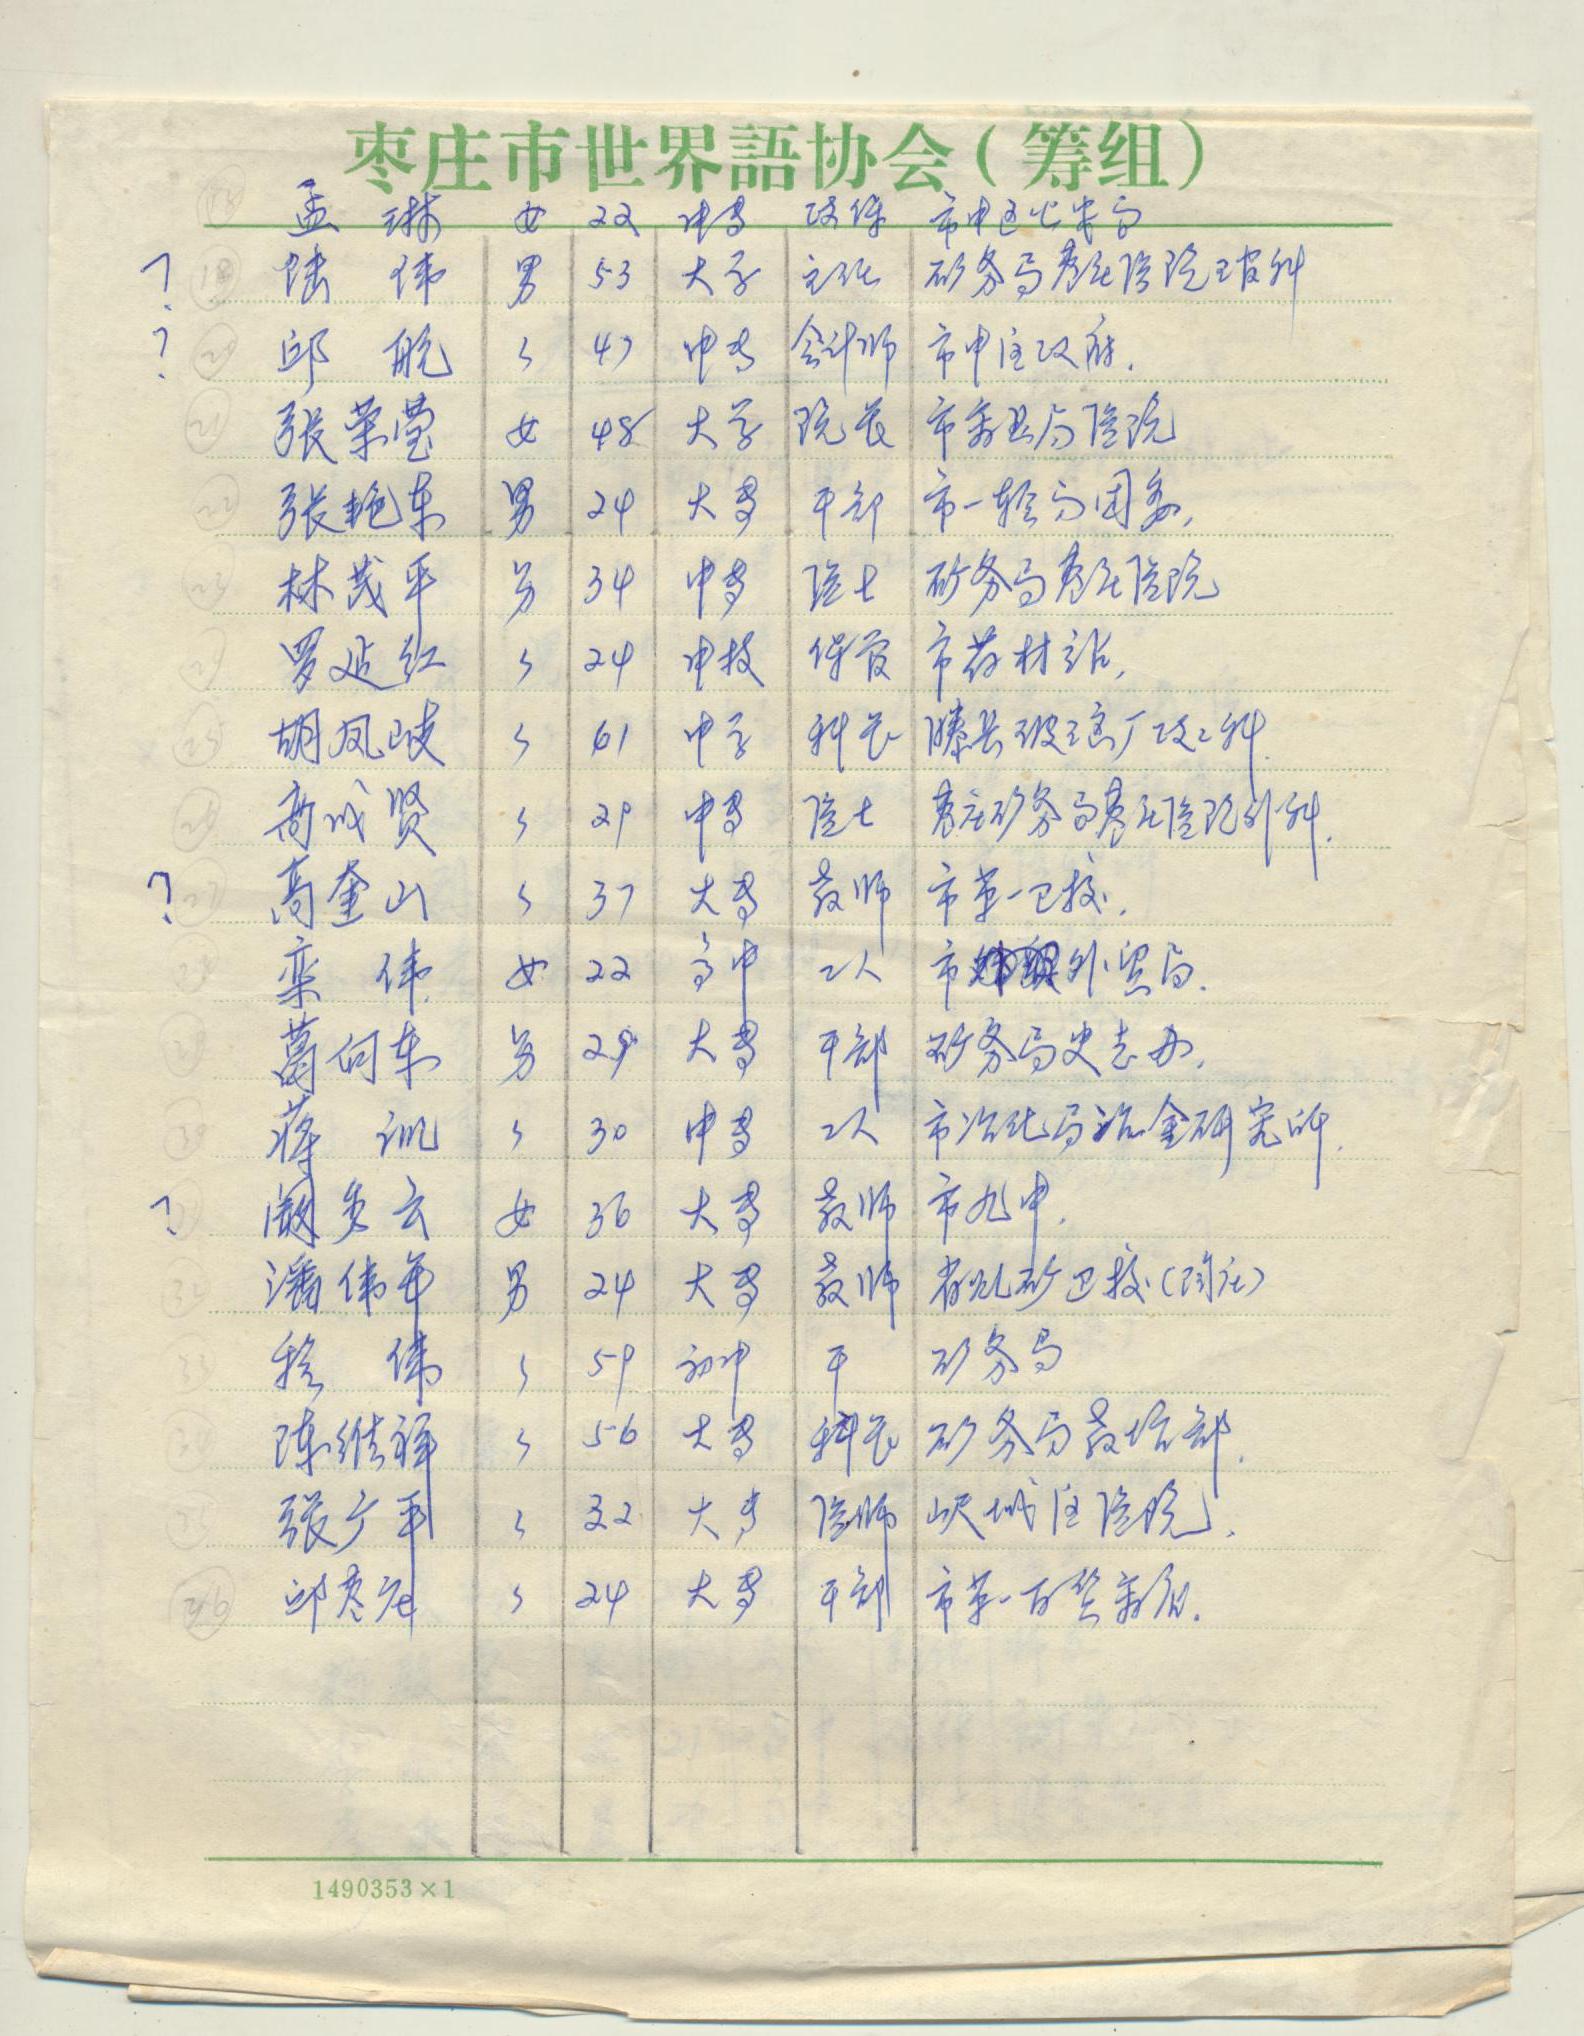 枣庄市世界語协会(筹组)
孟琳 女 22 中专 市中区
? 18 陆伟 男 53 大学 主任 矿务局枣庄医院皮科
? 20 邱航 〃 47 中专 会计师 市中区政府.
21 张荣莹 女 48 大学 院长 市医院
22 张艳东 男 24 大专 干部 市一轻局团委,
23 林茂平 男 34 中专 医士 矿务局枣庄医院
罗延红 〃 24 中技 保管 市药材站,
25 胡凤岐 〃 61 中学 科长 滕县玻璃厂政工科.
26 高成贤 〃 29 中专 医士 枣庄矿务局枣庄医院外科.
? 27 高奎山 〃 37 大专 教师 市第一卫校.
栾伟 女 22 高中 工人 市外贸局.
葛向东 男 29 大专 干部 矿务局史志办.
30 蒋 〃 30 中专 工人 市冶化局冶金研究所.
? 云 女 36 大专 教师 市九中.
32 潘伟年 男 24 大专 教师 卫校(陶庄)
33 伟 〃 59 初中 干 矿务局
陈继祥 〃 56 大专 科长 矿务局教培部.
35 张广平 〃 32 大专 医师 峄城区医院.
36 邱枣庄 〃 24 大专 干部 市第一百货商店.
1490353×1